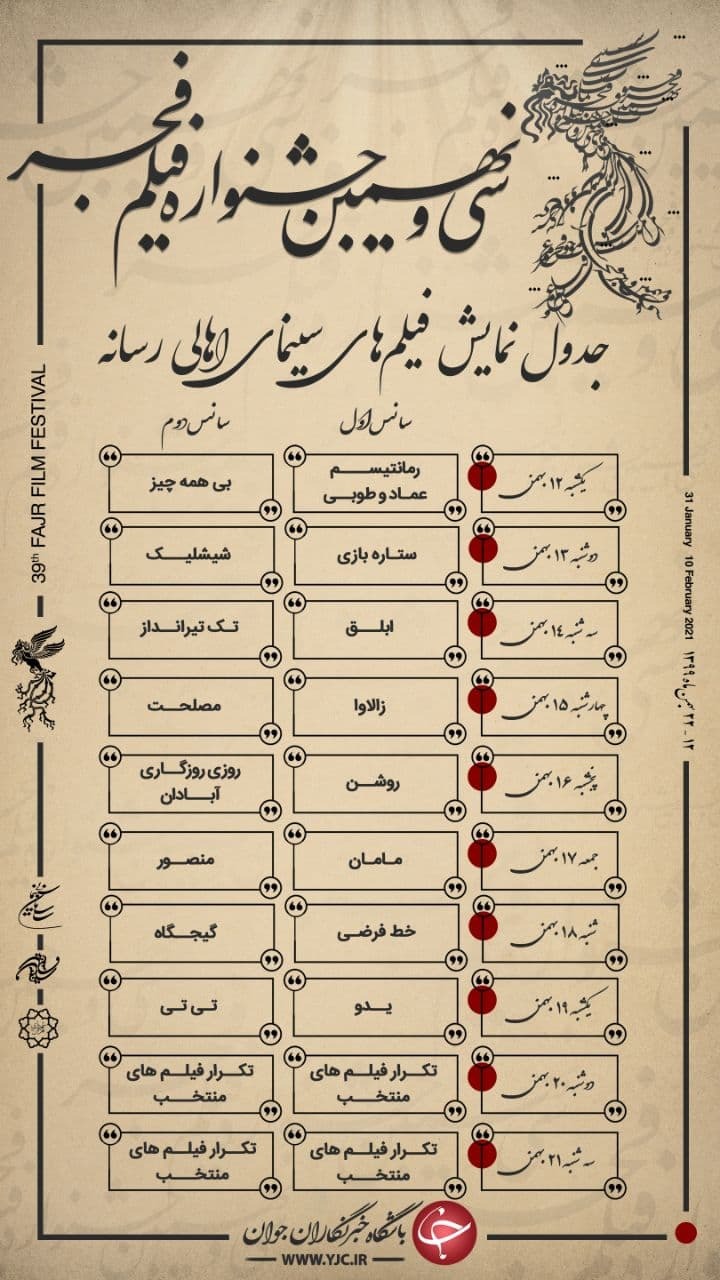 سی و نهمین جشنواره فیلم فجر
جدول نمایش فیلم های سینمای اهالی رسانه
سانس اول
سانس دوم
یکشنبه ۱۲ بهمن
رمانتیسم
عماد و طوبی
بی همه چیز
دوشنبه ۱۳ بهمن
ستاره بازی
شیشلیک
سه شنبه ۱۴ بهمن
ابلق
تک تیرانداز
چهارشنبه ۱۵ بهمن
زالاوا
مصلحت
پنجشنبه ۱۶ بهمن
روشن
روزی روزگاری
آبادان
جمعه ۱۷ بهمن
مامان
منصور
شنبه ۱۸ بهمن
خط فرضی
گیجگاه
یکشنبه ۱۹ بهمن
یدو
تی تی
دوشنبه ۲۰ بهمن
تکرار فیلم های
منتخب
تکرار فیلم های
منتخب
سه شنبه ۲۱ بهمن
تکرار فیلم های
منتخب
تکرار فیلم های
منتخب
39th FAJR FILM FESTIVAL
31 January 10 February 2021
۱۲ - ۲۲ بهمن ماه ۱۳۹۹
باشگاه خبرنگاران جوان
WWW.YJC.IR